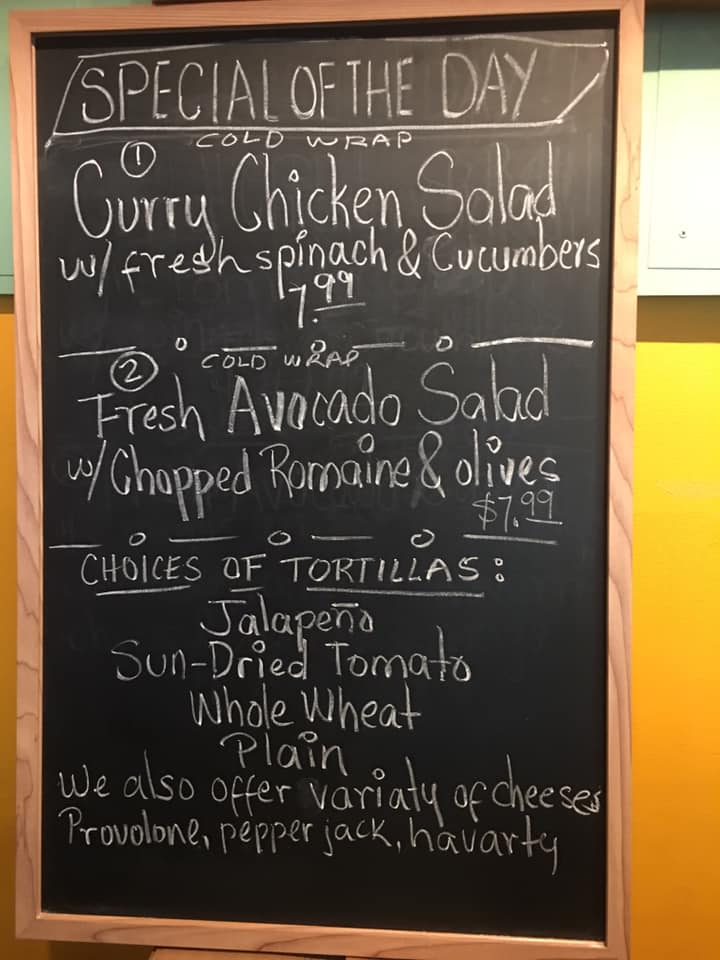 SPECIAL OF THE DAY
COLD WRAP
①
Curry Chicken Salad
w/ fresh spinach & Cucumbers
7.99
COLD WRAP
②
Fresh Avocado Salad
w/ Chopped Romaine & olives
$7.99
CHOICES OF TORTILLAS:
Jalapeño
Sun-Dried Tomato
Whole Wheat
Plain
We also offer variaty of cheeses
Provolone, pepper jack, havarty